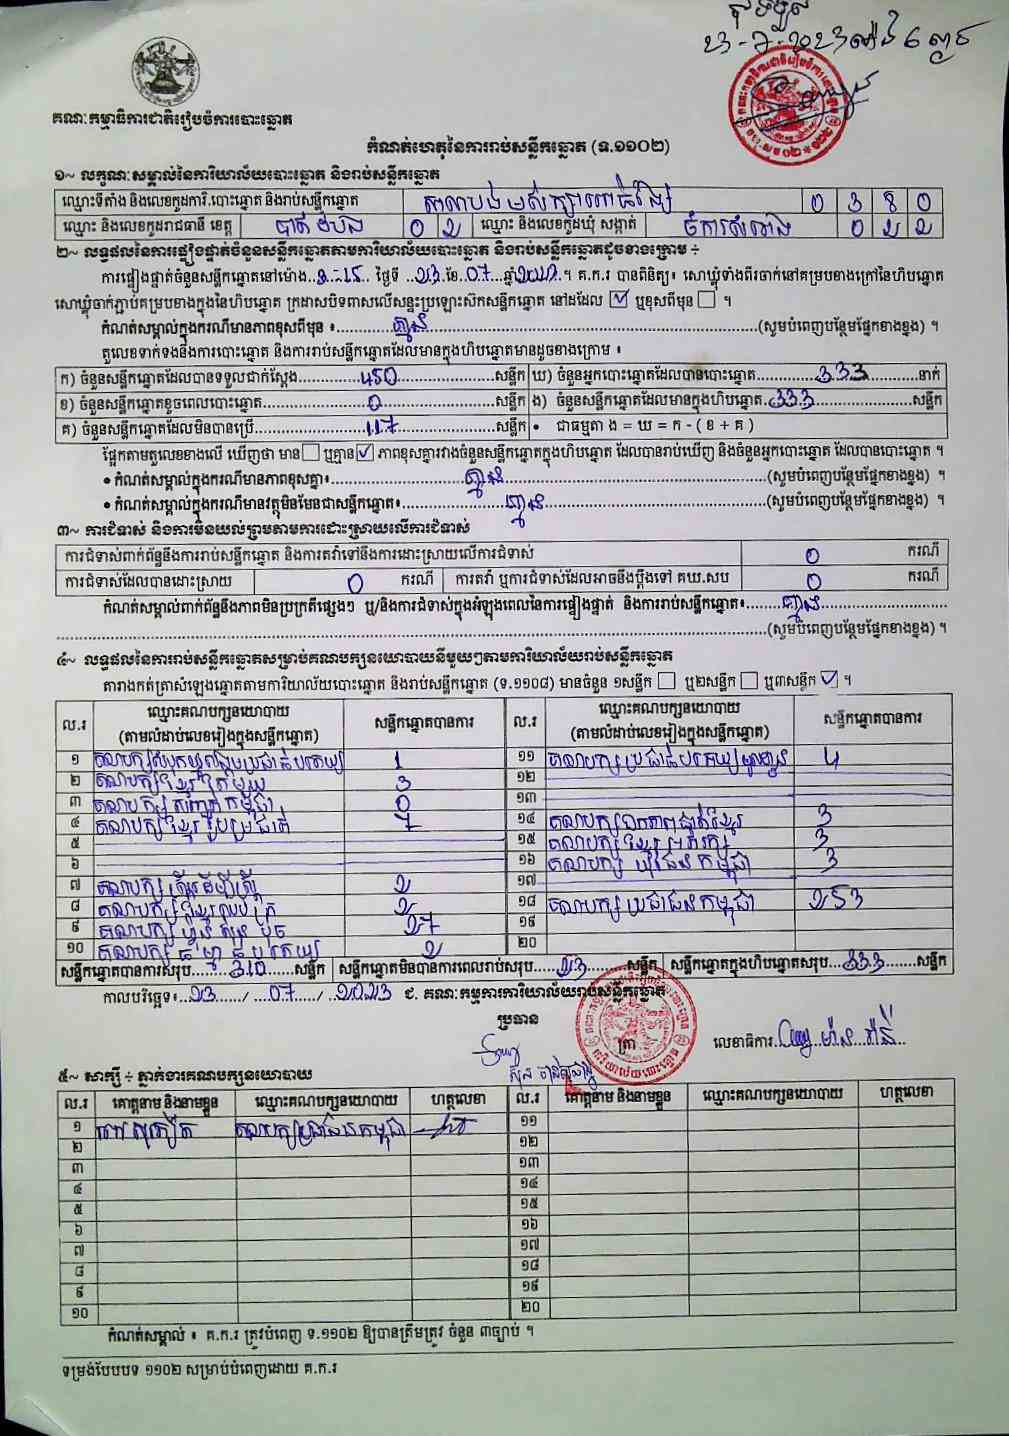 23-7-2023
គណៈកម្មាធិការជាតិរៀបចំការបោះឆ្នោត
កំណត់ហេតុនៃការរាប់សន្លឹកឆ្នោត (ទ.១១០២)
១~ លក្ខណៈសម្គាល់នៃការិយាល័យបោះឆ្នោត និងរាប់សន្លឹកឆ្នោត
ឈ្មោះទីតាំង និងលេខកូដការិ.បោះឆ្នោត និងរាប់សន្លឹកឆ្នោត 0 3 8 0
ឈ្មោះ និងលេខកូដរាជធានី ខេត្ត បាត់ដំបង 0 2 ឈ្មោះ និងលេខកូដឃុំ សង្កាត់ ចំការសំរោង 0 2 2
២~ លទ្ធផលនៃការផ្ទៀងផ្ទាត់ចំនួនសន្លឹកឆ្នោតតាមការិយាល័យបោះឆ្នោត និងរាប់សន្លឹកឆ្នោតដូចខាងក្រោម ៖
ការផ្ទៀងផ្ទាត់ចំនួនសន្លឹកឆ្នោតនៅម៉ោង 3-15 ថ្ងៃទី 23 ខែ 07 ឆ្នាំ 2023 ។ គ.ក.រ បានពិនិត្យ៖ សោឃ្លុំទាំងពីរចាក់នៅគម្របខាងក្រៅនៃហិបឆ្នោត
សោឃ្លុំចាក់ភ្ជាប់គម្របខាងក្នុងនៃហិបឆ្នោត ក្រដាសបិទពាសលើសន្ទះប្រឡោះស៊កសន្លឹកឆ្នោត នៅដដែល ☑ ឬខុសពីមុន ☐ ។
កំណត់សម្គាល់ក្នុងករណីមានភាពខុសពីមុន ៖ គ្មាន (សូមបំពេញបន្ថែមផ្នែកខាងខ្នង) ។
តួលេខទាក់ទងនឹងការបោះឆ្នោត និងការរាប់សន្លឹកឆ្នោតដែលមានក្នុងហិបឆ្នោតមានដូចខាងក្រោម ៖
ក) ចំនួនសន្លឹកឆ្នោតដែលបានទទួលជាក់ស្តែង 450 សន្លឹក ឃ) ចំនួនអ្នកបោះឆ្នោតដែលបានបោះឆ្នោត 333 នាក់
ខ) ចំនួនសន្លឹកឆ្នោតខូចពេលបោះឆ្នោត 0 សន្លឹក ង) ចំនួនសន្លឹកឆ្នោតដែលមានក្នុងហិបឆ្នោត 333 សន្លឹក
គ) ចំនួនសន្លឹកឆ្នោតដែលមិនបានប្រើ 117 សន្លឹក • ជាធម្មតា ង = ឃ = ក - ( ខ + គ )
ផ្អែកតាមតួលេខខាងលើ ឃើញថា មាន ☐ ឬគ្មាន ☑ ភាពខុសគ្នារវាងចំនួនសន្លឹកឆ្នោតក្នុងហិបឆ្នោត ដែលបានរាប់ឃើញ និងចំនួនអ្នកបោះឆ្នោត ដែលបានបោះឆ្នោត ។
• កំណត់សម្គាល់ក្នុងករណីមានភាពខុសគ្នា៖ គ្មាន (សូមបំពេញបន្ថែមផ្នែកខាងខ្នង) ។
• កំណត់សម្គាល់ក្នុងករណីមានវត្ថុមិនមែនជាសន្លឹកឆ្នោត៖ គ្មាន (សូមបំពេញបន្ថែមផ្នែកខាងខ្នង) ។
៣~ ការជំទាស់ និងការមិនយល់ព្រមតាមការដោះស្រាយលើការជំទាស់
ការជំទាស់ពាក់ព័ន្ធនឹងការរាប់សន្លឹកឆ្នោត និងការតវ៉ាទៅនឹងការដោះស្រាយលើការជំទាស់ 0 ករណី
ការជំទាស់ដែលបានដោះស្រាយ 0 ករណី ការតវ៉ា ឬការជំទាស់ដែលអាចនឹងប្តឹងទៅ គឃ.សប 0 ករណី
កំណត់សម្គាល់ពាក់ព័ន្ធនឹងភាពមិនប្រក្រតីផ្សេងៗ ឬ/និងការជំទាស់ក្នុងអំឡុងពេលនៃការផ្ទៀងផ្ទាត់ និងការរាប់សន្លឹកឆ្នោត៖ គ្មាន
(សូមបំពេញបន្ថែមផ្នែកខាងខ្នង) ។
៤~ លទ្ធផលនៃការរាប់សន្លឹកឆ្នោតសម្រាប់គណបក្សនយោបាយនីមួយៗតាមការិយាល័យរាប់សន្លឹកឆ្នោត
តារាងកត់ត្រាសំឡេងឆ្នោតតាមការិយាល័យបោះឆ្នោត និងរាប់សន្លឹកឆ្នោត (ទ.១១០៨) មានចំនួន ១សន្លឹក ☐ ឬ២សន្លឹក ☐ ឬ៣សន្លឹក ☑ ។
ល.រ ឈ្មោះគណបក្សនយោបាយ (តាមលំដាប់លេខរៀងក្នុងសន្លឹកឆ្នោត) សន្លឹកឆ្នោតបានការ ល.រ ឈ្មោះគណបក្សនយោបាយ (តាមលំដាប់លេខរៀងក្នុងសន្លឹកឆ្នោត) សន្លឹកឆ្នោតបានការ
១ គណបក្សសំបុកឃ្មុំសង្គមប្រជាធិបតេយ្យ 1 ១១ គណបក្សប្រជាធិបតេយ្យមូលដ្ឋាន 4
២ គណបក្សខ្មែររួបរួម 3 ១២
៣ គណបក្សកម្ពុជា 0 ១៣
៤ គណបក្សខ្មែររួបរួមជាតិ 7 ១៤ គណបក្សឯកភាពជាតិខ្មែរ 3
៥ ១៥ គណបក្សខ្មែរអភិរក្ស 3
៦ ១៦ គណបក្សយុវជនកម្ពុជា 3
៧ គណបក្សស្រ្តីដើម្បីស្ត្រី 2 ១៧
៨ គណបក្ស 2 ១៨ គណបក្សប្រជាជនកម្ពុជា 253
៩ គណបក្សហ៊្វុនស៊ិនប៉ិច 27 ១៩
១០ គណបក្សធម្មាធិបតេយ្យ 2 ២០
សន្លឹកឆ្នោតបានការសរុប 310 សន្លឹក សន្លឹកឆ្នោតមិនបានការពេលរាប់សរុប 23 សន្លឹក សន្លឹកឆ្នោតក្នុងហិបឆ្នោតសរុប 333 សន្លឹក
កាលបរិច្ឆេទ៖ 23 / 07 / 2023 ជ. គណៈកម្មការការិយាល័យរាប់សន្លឹកឆ្នោត
ប្រធាន
ត្រា លេខាធិការ
៥~ សាក្សី ៖ ភ្នាក់ងារគណបក្សនយោបាយ
ល.រ គោត្តនាម និងនាមខ្លួន ឈ្មោះគណបក្សនយោបាយ ហត្ថលេខា ល.រ គោត្តនាម និងនាមខ្លួន ឈ្មោះគណបក្សនយោបាយ ហត្ថលេខា
១ គណបក្សប្រជាជនកម្ពុជា ១១
២ ១២
៣ ១៣
៤ ១៤
៥ ១៥
៦ ១៦
៧ ១៧
៨ ១៨
៩ ១៩
១០ ២០
កំណត់សម្គាល់ ៖ គ.ក.រ ត្រូវបំពេញ ទ.១១០២ ឱ្យបានត្រឹមត្រូវ ចំនួន ៣ច្បាប់ ។
ទម្រង់បែបបទ ១១០២ សម្រាប់បំពេញដោយ គ.ក.រ